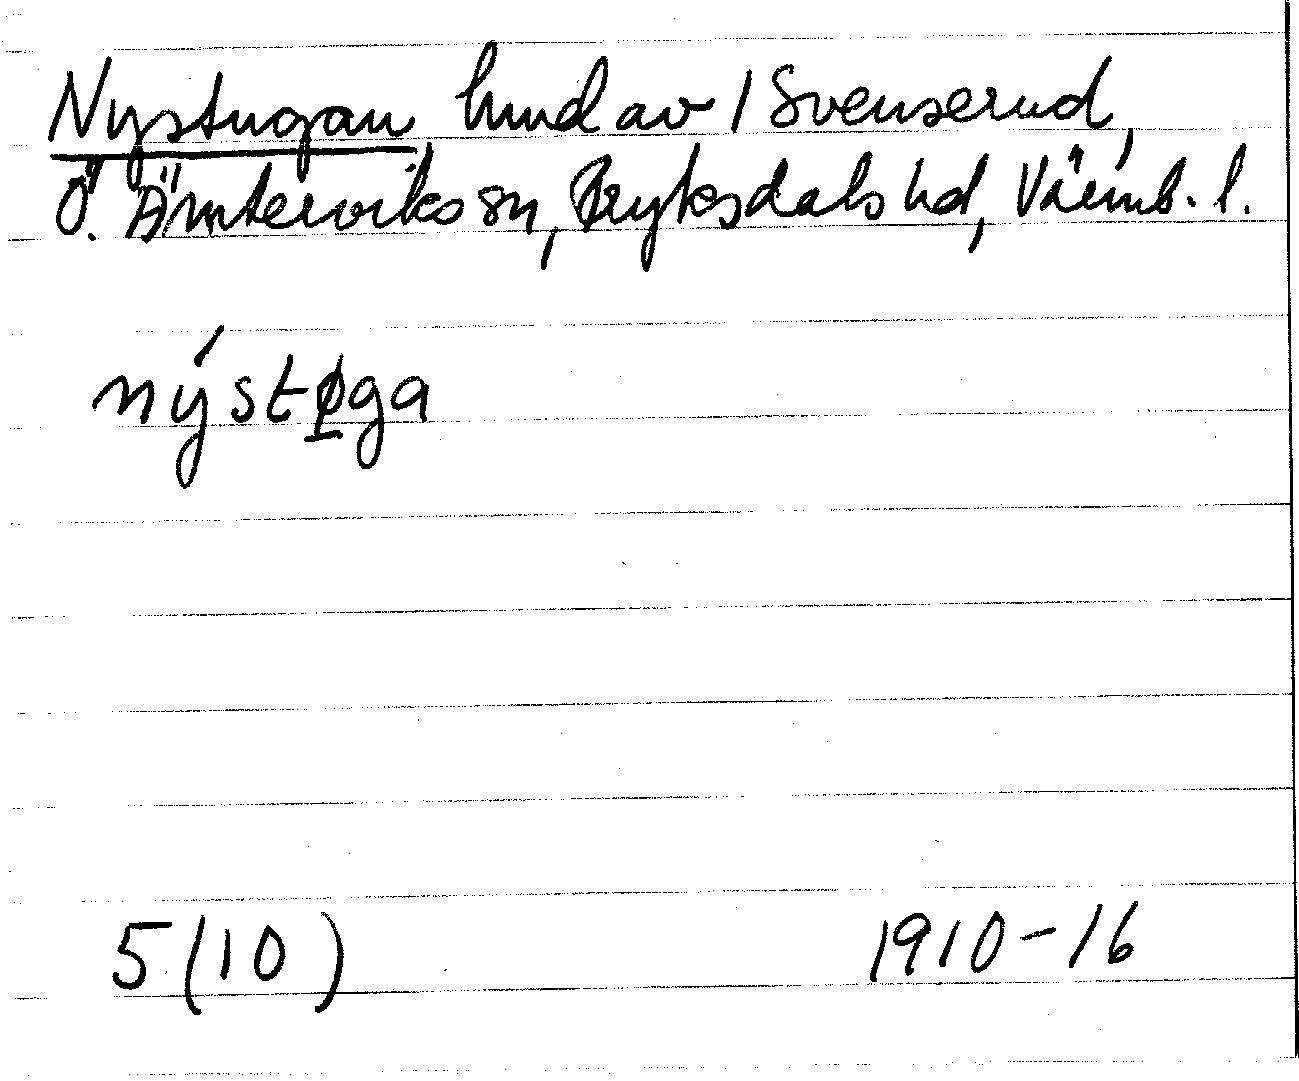 Nystugan hmd av 1 Svenserud,
Ö. Ämterviks sn, Fryksdals hd, Värml. l.
nýstøga
5(10) 1910-16